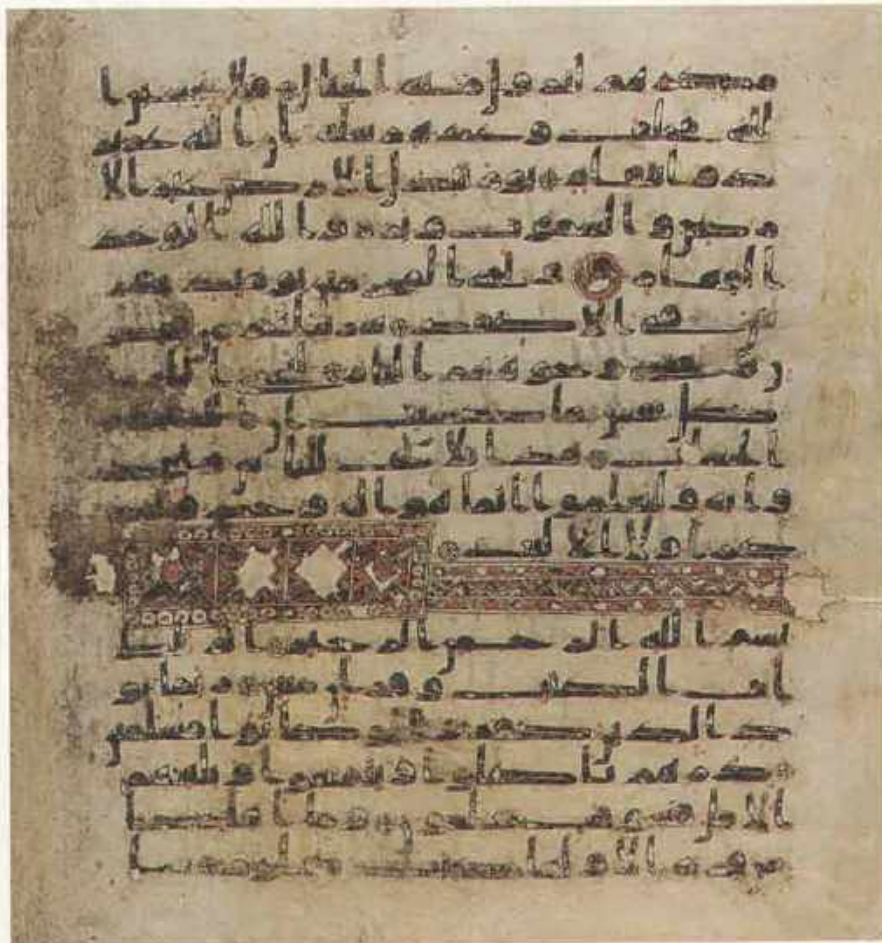 مكرهم لتزول منه الجبال فلا تحسبن ا
لله مخلف وعده رسله ان الله عزيز
ذو انتقام يوم تبدل الارض غير الا
رض والسموت وبرزوا لله الوحد
القهار وترى المجرمين يومئذ مقر
نين في الاصفاد سرابيلهم من قطر
ان وتغشى وجوههم النار ليجزي الله
كل نفس ما كسبت ان الله سريع
الحساب هذا بلغ للناس ولينذر
وا به وليعلموا انما هو اله وحد وليذ
كر اولوا الالبب
بسم الله الرحمن الرحيم الر تلك
ايت الكتب وقران مبين ربما يو
د الذين كفروا لو كانوا مسلمين
ذرهم ياكلوا ويتمتعوا ويلههم
الامل فسوف يعلمون وما اهلكنا
من قرية الا ولها كتب معلوم ما